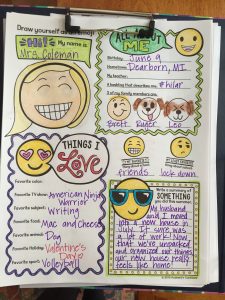 Draw yourself as an emoji!
Hi!
My name is
Mrs. Coleman
ALL ABOUT
ME
Birthday: June 9
Hometown: Dearborn, MI
My teacher:
A hashtag that describes me: #hilar
All of my family members are:
Brett Ruger Leo
friends
lock down
THINGS I
Love
Favorite color:
Favorite TV show: American Ninja
Warrior
Favorite subject: Writing
Favorite food: Mac and Cheese
Favorite
Dog
Favorite Holiday: Valentine's
Day
Favorite sport: Volleyball
Write a summary of
SOMETHING
you did this summer!
My husband
and I moved
into a new house in
July. It sure was
a lot of work! Now
that we've unpacked
and organized our things
our new house really
feels like home!